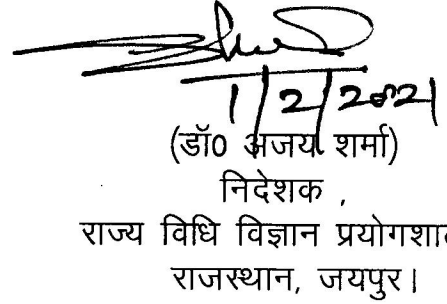 1/2/2021
(डॉ0 अजय शर्मा)
निदेशक ,
राज्य विधि विज्ञान
राजस्थान, जयपुर।